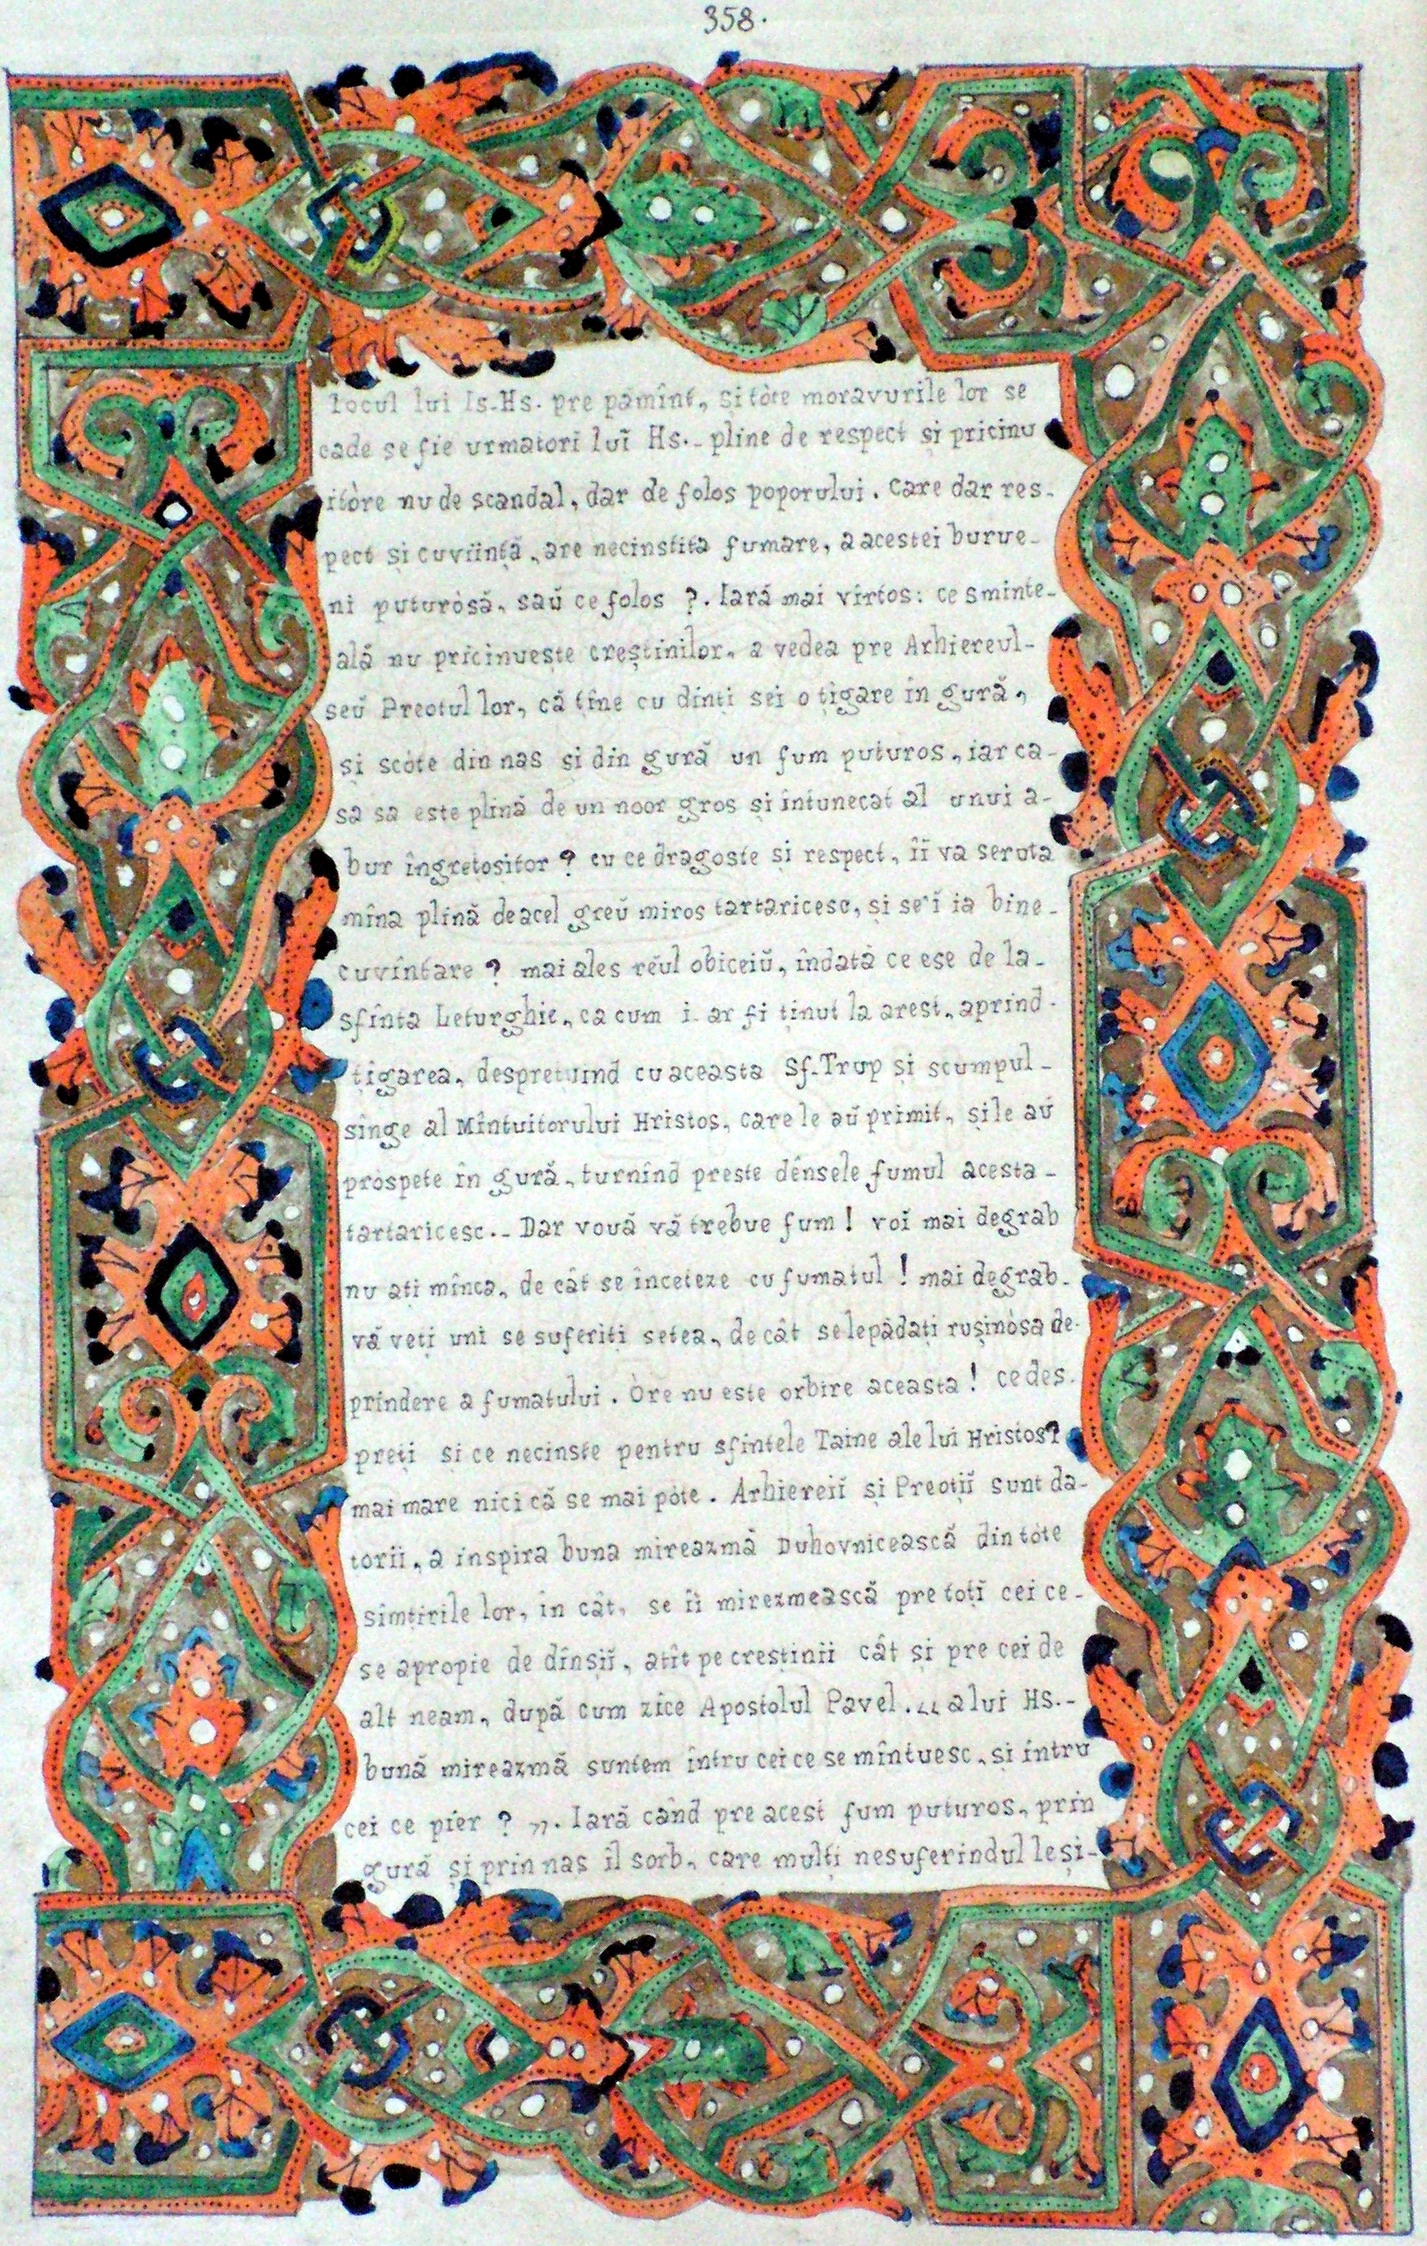 358.
locul lui Is. Hs. pre pămînt, și tòte moravurile lor se
cade se fie urmatori lui Hs. - pline de respect și pricinu
itòre nu de scandal, dar de folos poporului. Care dar res-
pect și cuviință, are necinstita fumare, a acestei burue-
ni puturòsă, saŭ ce folos ?. Iară mai vîrtos: ce sminte-
ală nu pricinuește creștinilor, a vedea pre Arhiereul-
seŭ Preotul lor, că ține cu dinți sei o țigare în gură,
și scòte din nas și din gură un fum puturos, iar ca-
sa sa este plină de un noor gros și întunecat al unui a-
bur îngrețositor ? cu ce dragoste și respect, îi va seruta
mîna plină de acel greŭ miros tartaricesc, și se'i ia bine-
cuvîntare ? mai ales rĕul obiceiŭ, îndată ce ese de la-
sfînta Leturghie, ca cum i-ar fi ținut la arest, aprind-
țigarea, desprețuind cu aceasta Sf. Trup și scumpul-
sînge al Mîntuitorului Hristos, care le aŭ primit, și le aŭ
pròspete în gură, turnînd preste dênsele fumul acesta-
tartaricesc. - Dar vouă vă trebue fum ! voi mai degrab
nu ați mînca, de cât se încetexe cu fumatul ! mai degrab-
vă veți uni se suferiți setea, de cât se lepădați rușinòsa de-
prindere a fumatului. Òre nu este orbire aceasta ! ce des-
preți și ce necinste pentru sfintele Taine ale lui Hristos?
mai mare nici că se mai pòte. Arhiereii și Preoții sunt da-
torii, a inspira buna mireazmă Duhovnicească din tòte
simțirile lor, in cât, se îi mirezmească pre toți cei ce-
se apropie de dînșii, atît pe creștinii cât și pre cei de
alt neam, după cum zice Apostolul Pavel. „ a lui Hs.-
bună mireazmă suntem întru cei ce se mîntuesc, și întru
cei ce pier ? ”. Iară când pre acest fum puturos, prin
gură și prin nas îl sorb, care mulți nesuferindul leși-